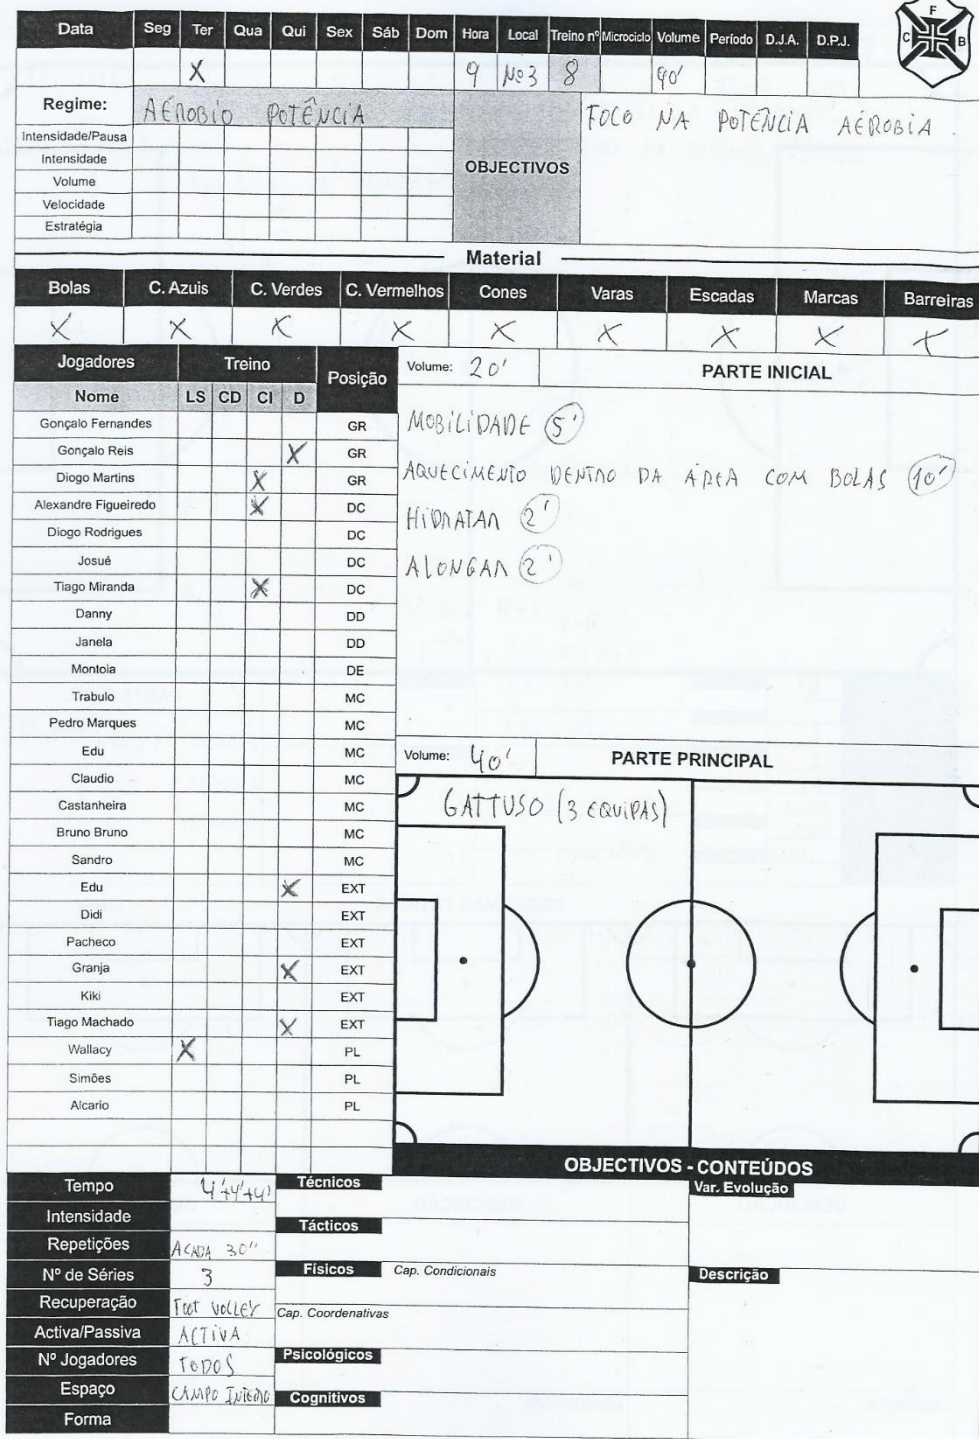 F
C B
Data Seg Ter Qua Qui Sex Sáb Dom Hora Local Treino nº Microciclo Volume Período D.J.A. D.P.J.
X 9 Nº3 8 90'
Regime: AÉROBIO POTÊNCIA
Intensidade/Pausa
Intensidade
Volume
Velocidade
Estratégia
OBJECTIVOS
FOCO NA POTÊNCIA AÉROBIA.
Material
Bolas C. Azuis C. Verdes C. Vermelhos Cones Varas Escadas Marcas Barreiras
X X X X X X X X X
Jogadores Treino Posição
Nome LS CD CI D
Gonçalo Fernandes GR
Gonçalo Reis X GR
Diogo Martins X GR
Alexandre Figueiredo X DC
Diogo Rodrigues DC
Josué DC
Tiago Miranda X DC
Danny DD
Janela DD
Montoia DE
Trabulo MC
Pedro Marques MC
Edu MC
Claudio MC
Castanheira MC
Bruno Bruno MC
Sandro MC
Edu X EXT
Didi EXT
Pacheco EXT
Granja X EXT
Kiki EXT
Tiago Machado X EXT
Wallacy X PL
Simões PL
Alcario PL
Volume: 20' PARTE INICIAL
MOBILIDADE 5'
AQUECIMENTO DENTRO DA ÁREA COM BOLAS 10'
HIDRATAR 2'
ALONGAR 2'
Volume: 40' PARTE PRINCIPAL
GATTUSO (3 EQUIPAS)
OBJECTIVOS - CONTEÚDOS
Tempo 4'+4'+4'
Intensidade
Repetições ACADA 30''
Nº de Séries 3
Recuperação FOOT VOLLEY
Activa/Passiva ACTIVA
Nº Jogadores TODOS
Espaço CAMPO INTEIRO
Forma
Técnicos
Tácticos
Físicos Cap. Condicionais
Cap. Coordenativas
Psicológicos
Cognitivos
Var. Evolução
Descrição